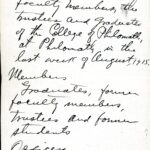 faculty members, the
trustees and graduates
of the College of Philomath,
at Philomath, in the
last week of August, 1915.
Members
Graduates, former
faculty members,
trustees and former
students
Officers